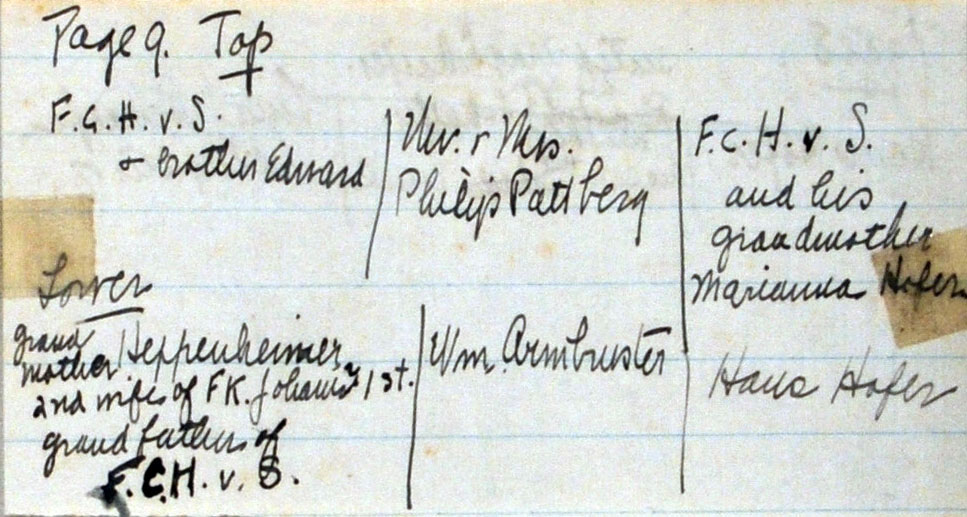 Page 9. Top
F.C.H.v.S.
+ brother Edward
Mr. & Mrs.
Philip Pattberg
F.C.H.v.S.
and his
grandmother
Marianna Hofer
Lower
grand
mother Heppenheimer
2nd wife of F.K. 1st.
grandfather of
F.C.H.v.S.
Wm. Armbruster
Hans Hofer